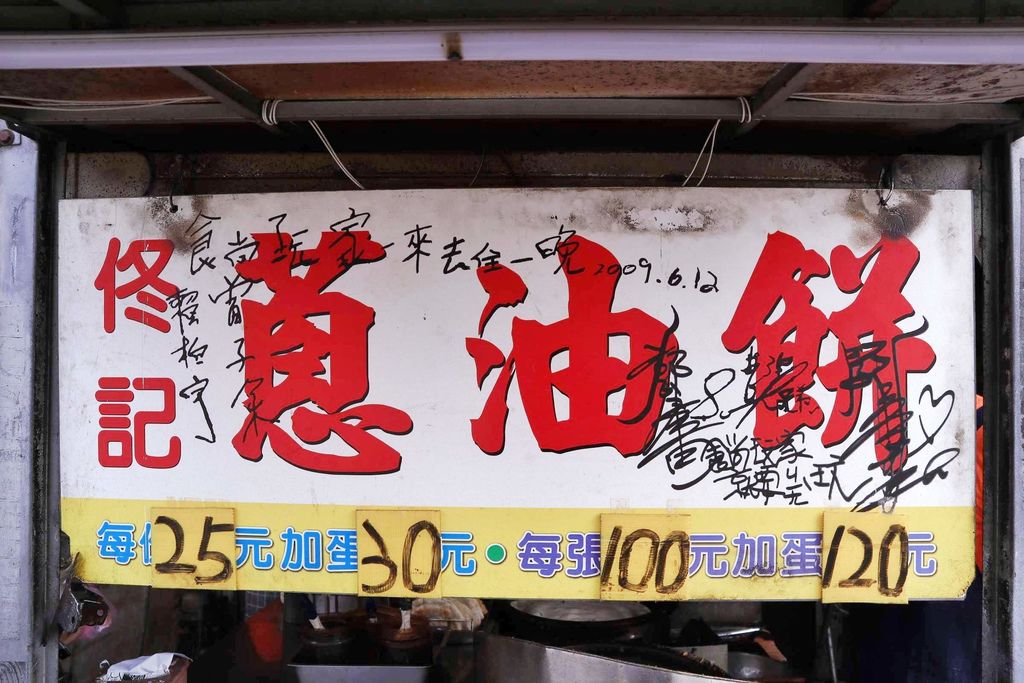 佟記
蔥油餅
食尚玩家 來去住一晚 2009.6.12
曾子余
賴柏宇
食尚玩家
就要
每 25 元加蛋 30 元 • 每張 100 元加蛋 120 元